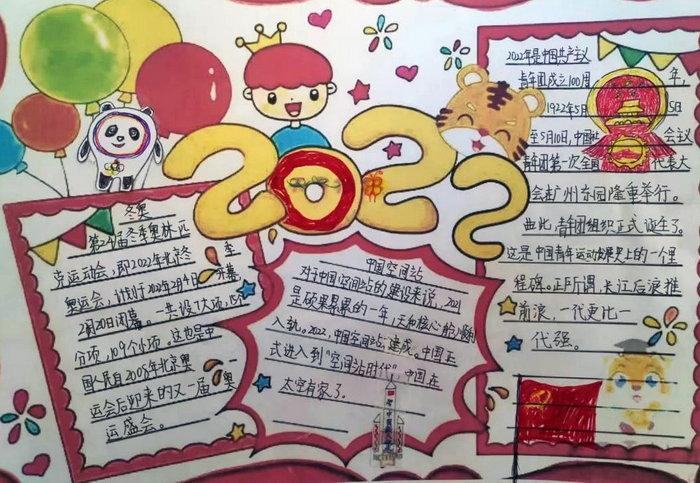 2022
冬奥
第24届冬季奥林匹
克运动会，即2022年北京冬
奥运会，计划于2022年2月4日开幕
2月20日闭幕。一共设7大项，15
分项，109个小项。这也是中
国人民自2008年北京奥
运会后迎来的又一届奥
运盛会。
中国空间站
对于中国空间站的建设来说，2021
是硕果累累的一年，天和核心舱
入轨。2022，中国空间站建成。中国正
式进入到“空间站时代”中国在
太空有家了。
中国
2022年是中国共产主义
青年团成立100周年，
1922年5月5
至5月10日，中国社会议
青年团第一次全国代表大
会在广州东园隆重举行。
由此，青年团组织正式诞生了。
这是中国青年运动发展史上的一个里
程碑。正所谓长江后浪推
前浪，一代更比一
代强。